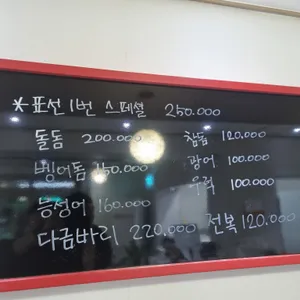 *표선 1번 스페셜 250.000
돌돔 200.000 참돔 120.000
벵어돔 150.000 광어 100.000
우럭 100.000
능성어 160.000
다금바리 220.000 전복 120.000